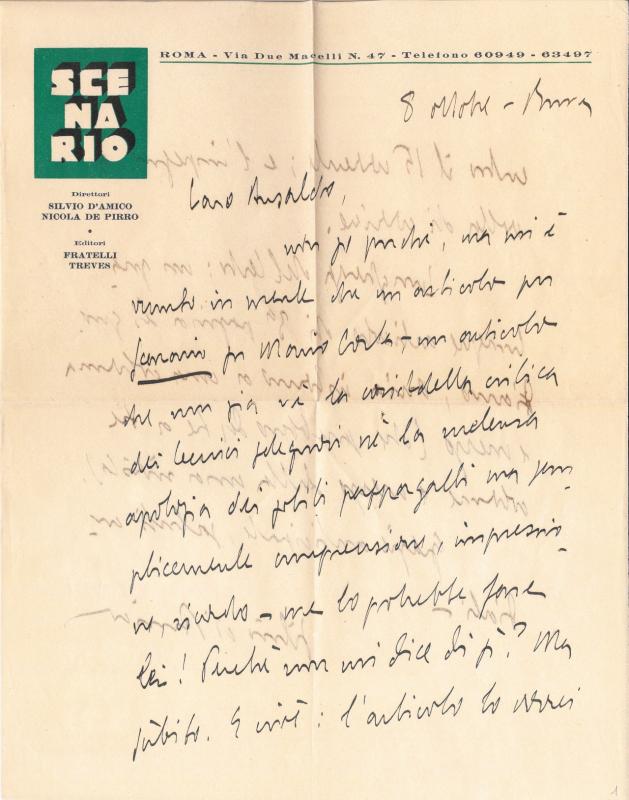 SCE
NA
RIO
ROMA - Via Due Macelli N. 47 - Telefono 60949 - 63497
Direttori
SILVIO D'AMICO
NICOLA DE PIRRO
Editori
FRATELLI
TREVES
8 ottobre -
Caro Ansaldo,
non so perché, ma mi è
venuto in mente che un articolo per
Scenario su Mario Costa - un articolo
che non sia né la cosiddetta critica
dei tecnici né la melensa
apologia dei soliti pappagalli ma sem
plicemente comprensione, impressio
ne, ricordo - me lo potrebbe fare
lei! Perché non mi dice di sì? Ma
sùbito. E cioè: l'articolo lo vorrei
1